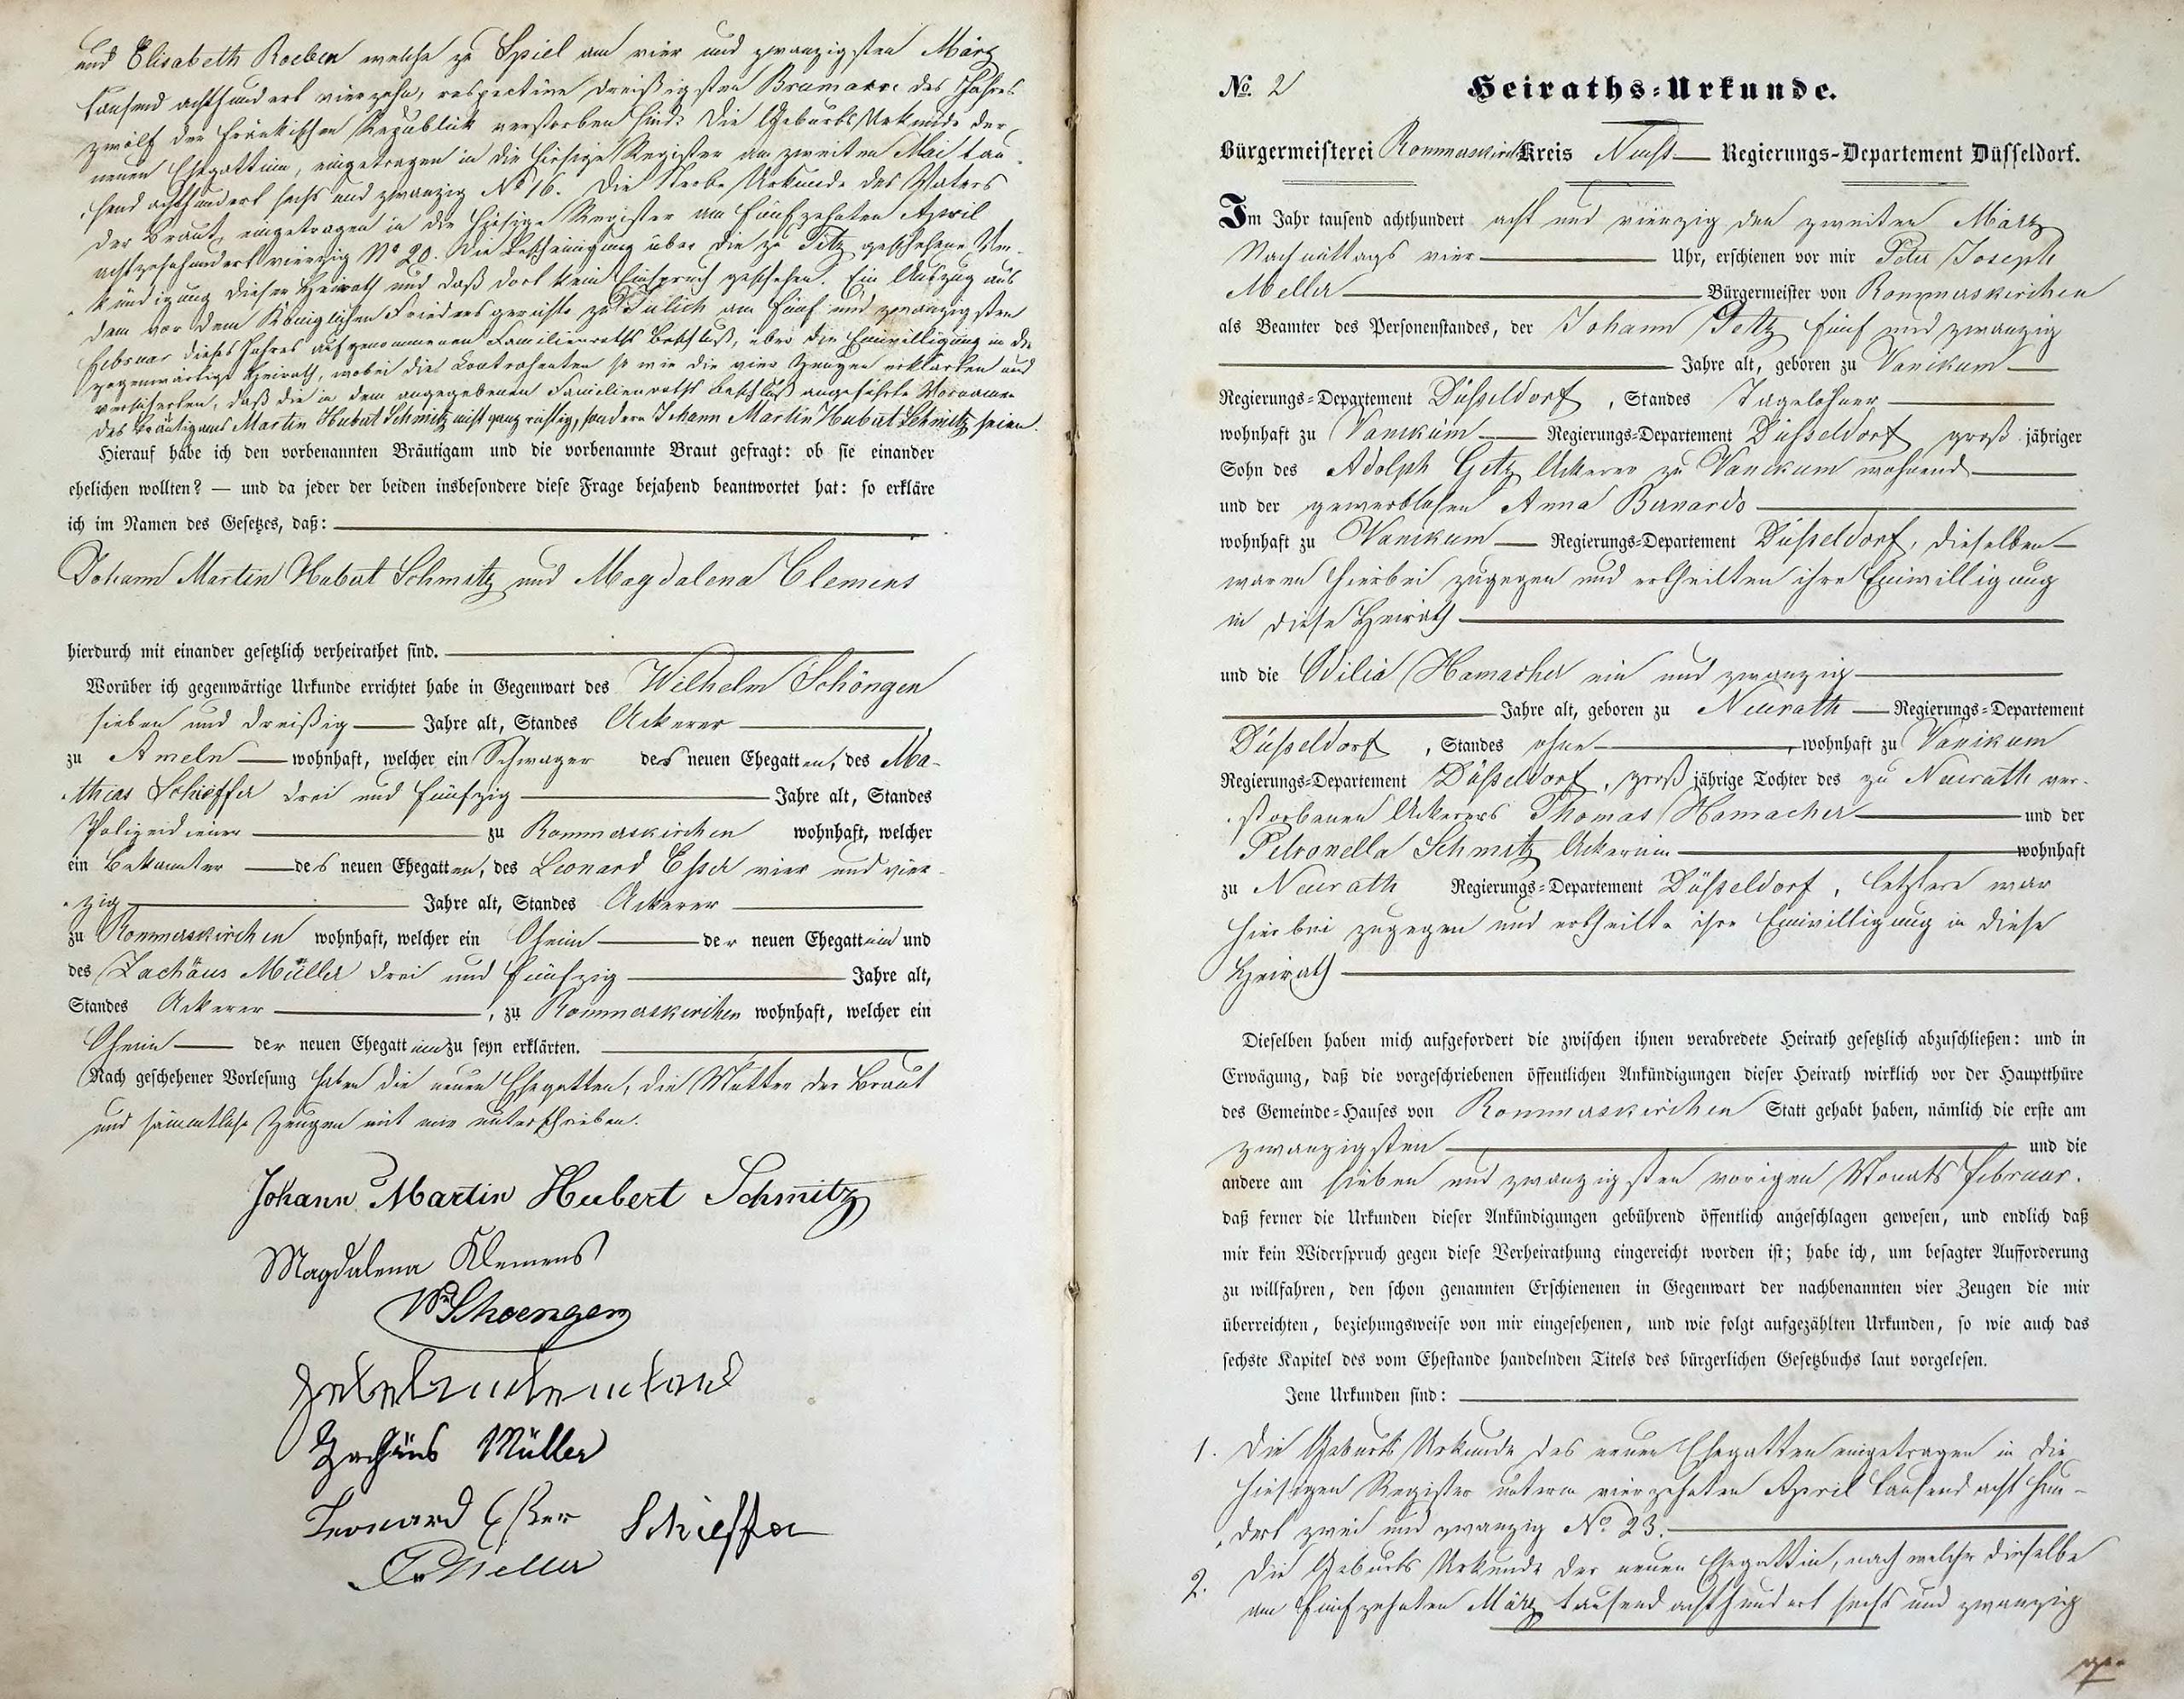 und Elisabeth Roeben welche zu Spiel am vier und zwanzigsten März
tausend achthundert vierzehn, respective dreißigsten Brumaire des Jahres
zwölf der fränkischen Republick verstorben sind. Die Geburts Urkunde der
neuen Ehegattinn, eingetragen in die hiesige Register am zweiten Mai tau-
send achthundert sechs und zwanzig No 16. Die Sterbe Urkunde des Vaters
der Braut, eingetragen in die hiesige Register am fünfzehnten April
achtzehnhundert vierzig No 20. Die Bescheinigung über die zu Titz geschehene Ver-
kündigung dieser Heirath und daß dort kein Einspruch geschehen. Ein Auszug aus
dem vor dem Königlichen Friedensgerichte zu Jülich am fünf und zwanzigsten
Februar dieses Jahres aufgenommenen Familienraths Beschluß, über die Einwilligung in die
gegenwärtige Heirath, wobei die Contrahenten so wie die vier Zeugen erklärten und
versicherten, daß die in dem angegebenen Familienraths Beschluß angeführte Vornamen
des Bräutigams Martin Hubert Schmitz nicht ganz richtig, sondern Johann Martin Hubert Schmitz seien.
Hierauf habe ich den vorbenannten Bräutigam und die vorbenannte Braut gefragt: ob sie einander
ehelichen wollten? — und da jeder der beiden insbesondere diese Frage bejahend beantwortet hat: so erkläre
ich im Namen des Gesetzes, daß:
Johann Martin Hubert Schmitz und Magdalena Clemens
hierdurch mit einander gesetzlich verheirathet sind.
Worüber ich gegenwärtige Urkunde errichtet habe in Gegenwart des Wilhelm Schöngen
sieben und dreißig Jahre alt, Standes Ackerer
zu Ameln wohnhaft, welcher ein Schwager des neuen Ehegatten, des Ma-
thias Schieffer drei und fünfzig Jahre alt, Standes
Polizeidiener zu Rommerskirchen wohnhaft, welcher
ein Bekannter des neuen Ehegatten, des Leonard Esser vier und vier-
zig Jahre alt, Standes Ackerer
zu Rommerskirchen wohnhaft, welcher ein Oheim der neuen Ehegattinn und
des Zachäus Müller drei und fünfzig Jahre alt,
Standes Ackerer, zu Rommerskirchen wohnhaft, welcher ein
Oheim der neuen Ehegattinn zu seyn erklärten.
Nach geschehener Vorlesung haben die neuen Ehegatten, die Mutter der Braut
und sämmtliche Zeugen mit mir unterschrieben.
Johann Martin Hubert Schmitz
Magdalena Klemens
Wm Schoengen
Zachäus Müller
Leonard Esser Schieffer
Meller
No. 2 Heiraths-Urkunde.
Bürgermeisterei Rommerskirch Kreis Neuß Regierungs-Departement Düsseldorf.
Im Jahr tausend achthundert acht und vierzig den zweiten März
Nachmittags vier Uhr, erschienen vor mir Peter Joseph
Meller Bürgermeister von Rommerskirchen
als Beamter des Personenstandes, der Johann Goetz fünf und zwanzig
Jahre alt, geboren zu Vanikum
Regierungs-Departement Düsseldorf, Standes Tagelöhner
wohnhaft zu Vanikum Regierungs-Departement Düsseldorf groß jähriger
Sohn des Adolph Götz Ackerer zu Vanikum wohnend
und der gewerblosen Anna Bernards
wohnhaft zu Vanikum Regierungs-Departement Düsseldorf, dieselben
waren hierbei zugegen und ertheilten ihre Einwilligung
in diese Heirath
und die Odilia Hamacher ein und zwanzig
Jahre alt, geboren zu Neurath Regierungs-Departement
Düsseldorf, Standes ohne, wohnhaft zu Vanikum
Regierungs-Departement Düsseldorf, groß jährige Tochter des zu Neurath ver-
storbenen Ackerers Thomas Hamacher und der
Petronella Schmitz Ackerinn wohnhaft
zu Neurath Regierungs-Departement Düsseldorf, letztere war
hierbei zugegen und ertheilte ihre Einwilligung in diese
Heirath
Dieselben haben mich aufgefordert die zwischen ihnen verabredete Heirath gesetzlich abzuschließen: und in
Erwägung, daß die vorgeschriebenen öffentlichen Ankündigungen dieser Heirath wirklich vor der Hauptthüre
des Gemeinde-Hauses von Rommerskirchen Statt gehabt haben, nämlich die erste am
zwanzigsten und die
andere am sieben und zwanzigsten vorigen Monats Februar.
daß ferner die Urkunden dieser Ankündigungen gebührend öffentlich angeschlagen gewesen, und endlich daß
mir kein Widerspruch gegen diese Verheirathung eingereicht worden ist; habe ich, um besagter Aufforderung
zu willfahren, den schon genannten Erschienenen in Gegenwart der nachbenannten vier Zeugen die mir
überreichten, beziehungsweise von mir eingesehenen, und wie folgt aufgezählten Urkunden, so wie auch das
sechste Kapitel des vom Ehestande handelnden Titels des bürgerlichen Gesetzbuchs laut vorgelesen.
Jene Urkunden sind:
1. Die Geburts Urkunde des neuen Ehegatten eingetragen in die
hiesigen Register unterm vierzehnten April tausend acht hun-
dert zwei und zwanzig No 23.
2. Die Geburts Urkunde der neuen Ehegattin, nach welcher dieselbe
am fünfzehnten März tausend achthundert sechs und zwanzig